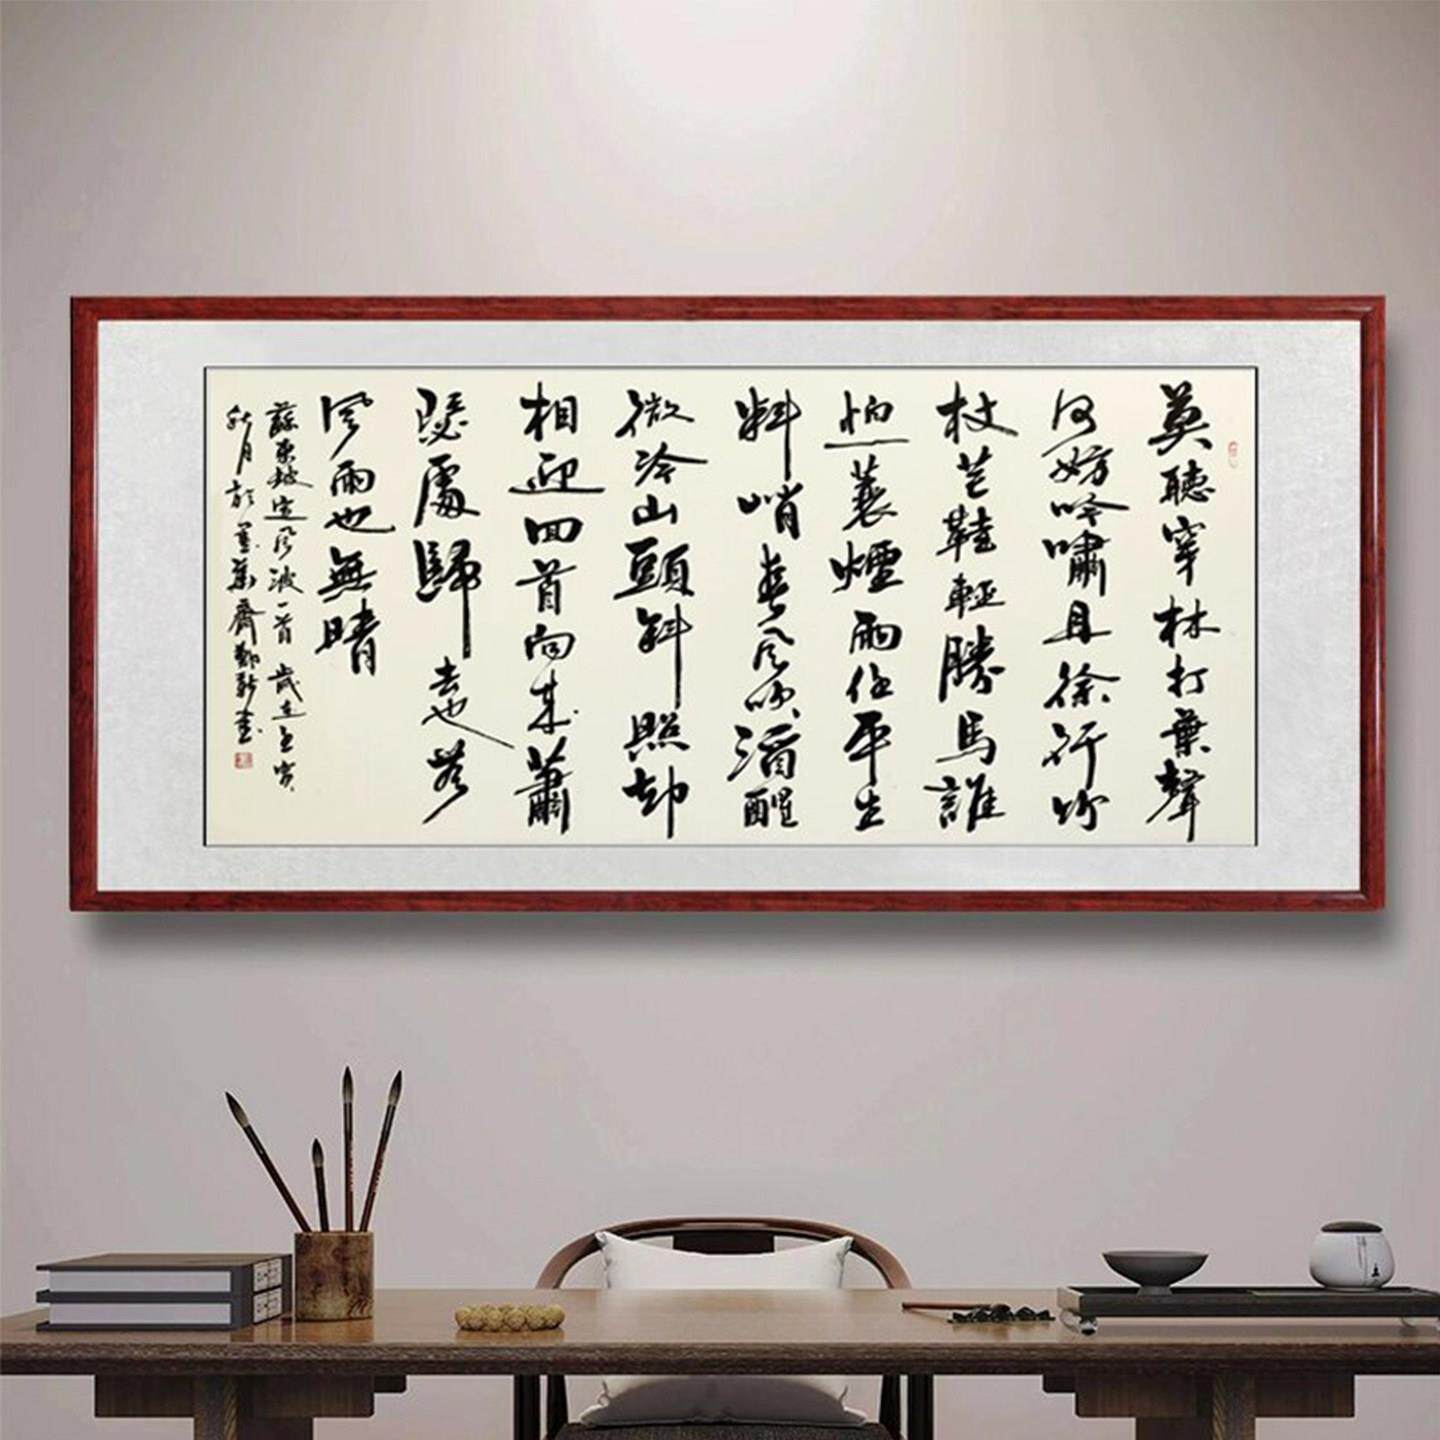 莫聽穿林打葉聲
何妨吟嘯且徐行竹
杖芒鞋輕勝馬誰
怕一蓑煙雨任平生
料峭春風吹酒醒
微冷山頭斜照却
相迎回首向來蕭
瑟處歸去也無
風雨也無晴
蘇東坡定風波一首 歲在壬寅
秋月於墨齋鄭新書